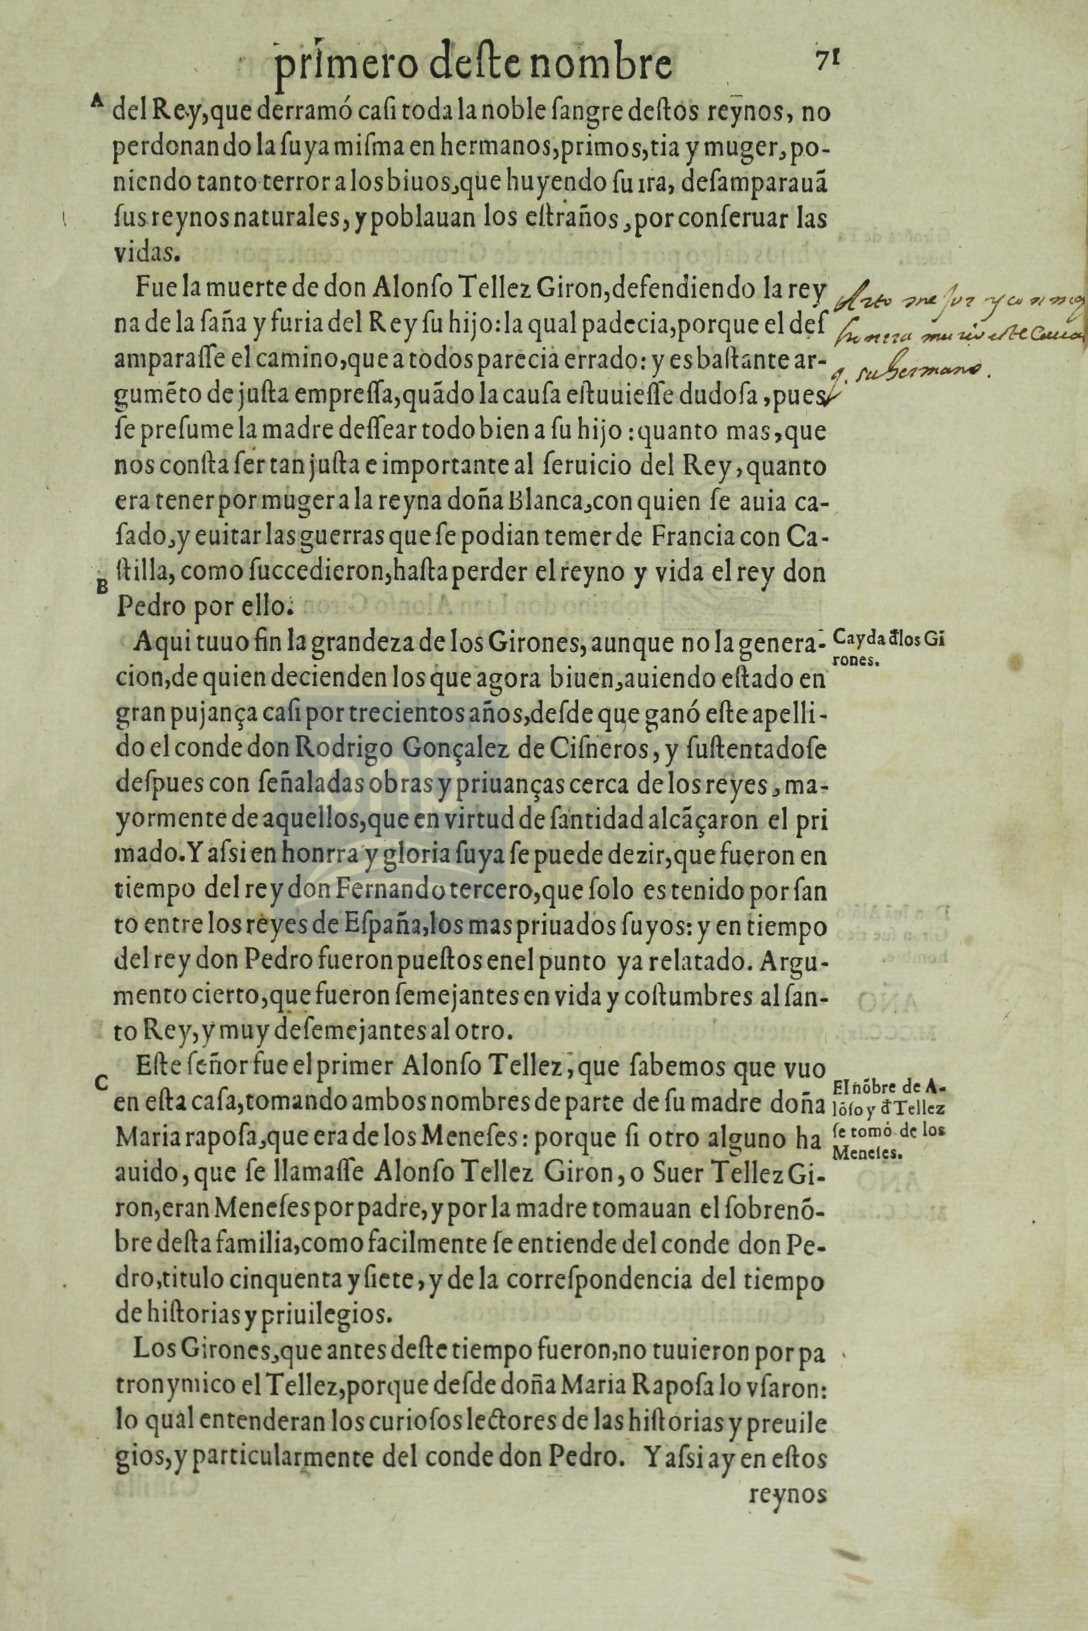 primero deſte nombre 71
A del Rey, que derramó caſi toda la noble ſangre deſtos reynos, no
perdonando la ſuya miſma en hermanos, primos, tia y muger, po-
niendo tanto terror a los biuos, que huyendo ſu ira, deſamparauã
ſus reynos naturales, y poblauan los eſtraños, por conſeruar las
vidas.
Fue la muerte de don Alonſo Tellez Giron, defendiendo la rey
na de la ſaña y furia del Rey ſu hijo: la qual padecia, porque el deſ
amparaſſe el camino, que a todos parecia errado: y es baſtante ar-
gumẽto de juſta empreſſa, quãdo la cauſa eſtuuieſſe dudoſa, pues
q. su hermano.
ſe preſume la madre deſſear todo bien a ſu hijo: quanto mas, que
nos conſta ſer tan juſta e importante al ſeruicio del Rey, quanto
era tener por muger a la reyna doña Blanca, con quien ſe auia ca-
ſado, y euitar las guerras que ſe podian temer de Francia con Ca-
B ſtilla, como ſuccedieron, haſta perder el reyno y vida el rey don
Pedro por ello.
Aqui tuuo fin la grandeza de los Girones, aunque no la genera-
cion, de quien decienden los que agora biuen, auiendo eſtado en
Cayda đlos Gi
rones.
gran pujança caſi por trecientos años, deſde que ganó eſte apelli-
do el conde don Rodrigo Gonçalez de Ciſneros, y ſuſtentadoſe
deſpues con ſeñaladas obras y priuanças cerca de los reyes, ma-
yormente de aquellos, que en virtud de ſantidad alcãçaron el pri
mado. Y aſsi en honrra y gloria ſuya ſe puede dezir, que fueron en
tiempo del rey don Fernando tercero, que ſolo es tenido por ſan
to entre los reyes de Eſpaña, los mas priuados ſuyos: y en tiempo
del rey don Pedro fueron pueſtos enel punto ya relatado. Argu-
mento cierto, que fueron ſemejantes en vida y coſtumbres al ſan-
to Rey, y muy deſemejantes al otro.
Eſte ſeñor fue el primer Alonſo Tellez, que ſabemos que vuo
C en eſta caſa, tomando ambos nombres de parte de ſu madre doña
Maria rapoſa, que era de los Meneſes: porque ſi otro alguno ha
El nõbre de A-
lõſo y đ Tellez
ſe tomó de los
Meneſes.
auido, que ſe llamaſſe Alonſo Tellez Giron, o Suer Tellez Gi-
ron, eran Meneſes por padre, y por la madre tomauan el ſobrenõ-
bre deſta familia, como facilmente ſe entiende del conde don Pe-
dro, titulo cinquenta y ſiete, y de la correſpondencia del tiempo
de hiſtorias y priuilegios.
Los Girones, que antes deſte tiempo fueron, no tuuieron por pa
tronymico el Tellez, porque deſde doña Maria Rapoſa lo vſaron:
lo qual entenderan los curioſos lectores de las hiſtorias y preuile
gios, y particularmente del conde don Pedro. Y aſsi ay en eſtos
reynos